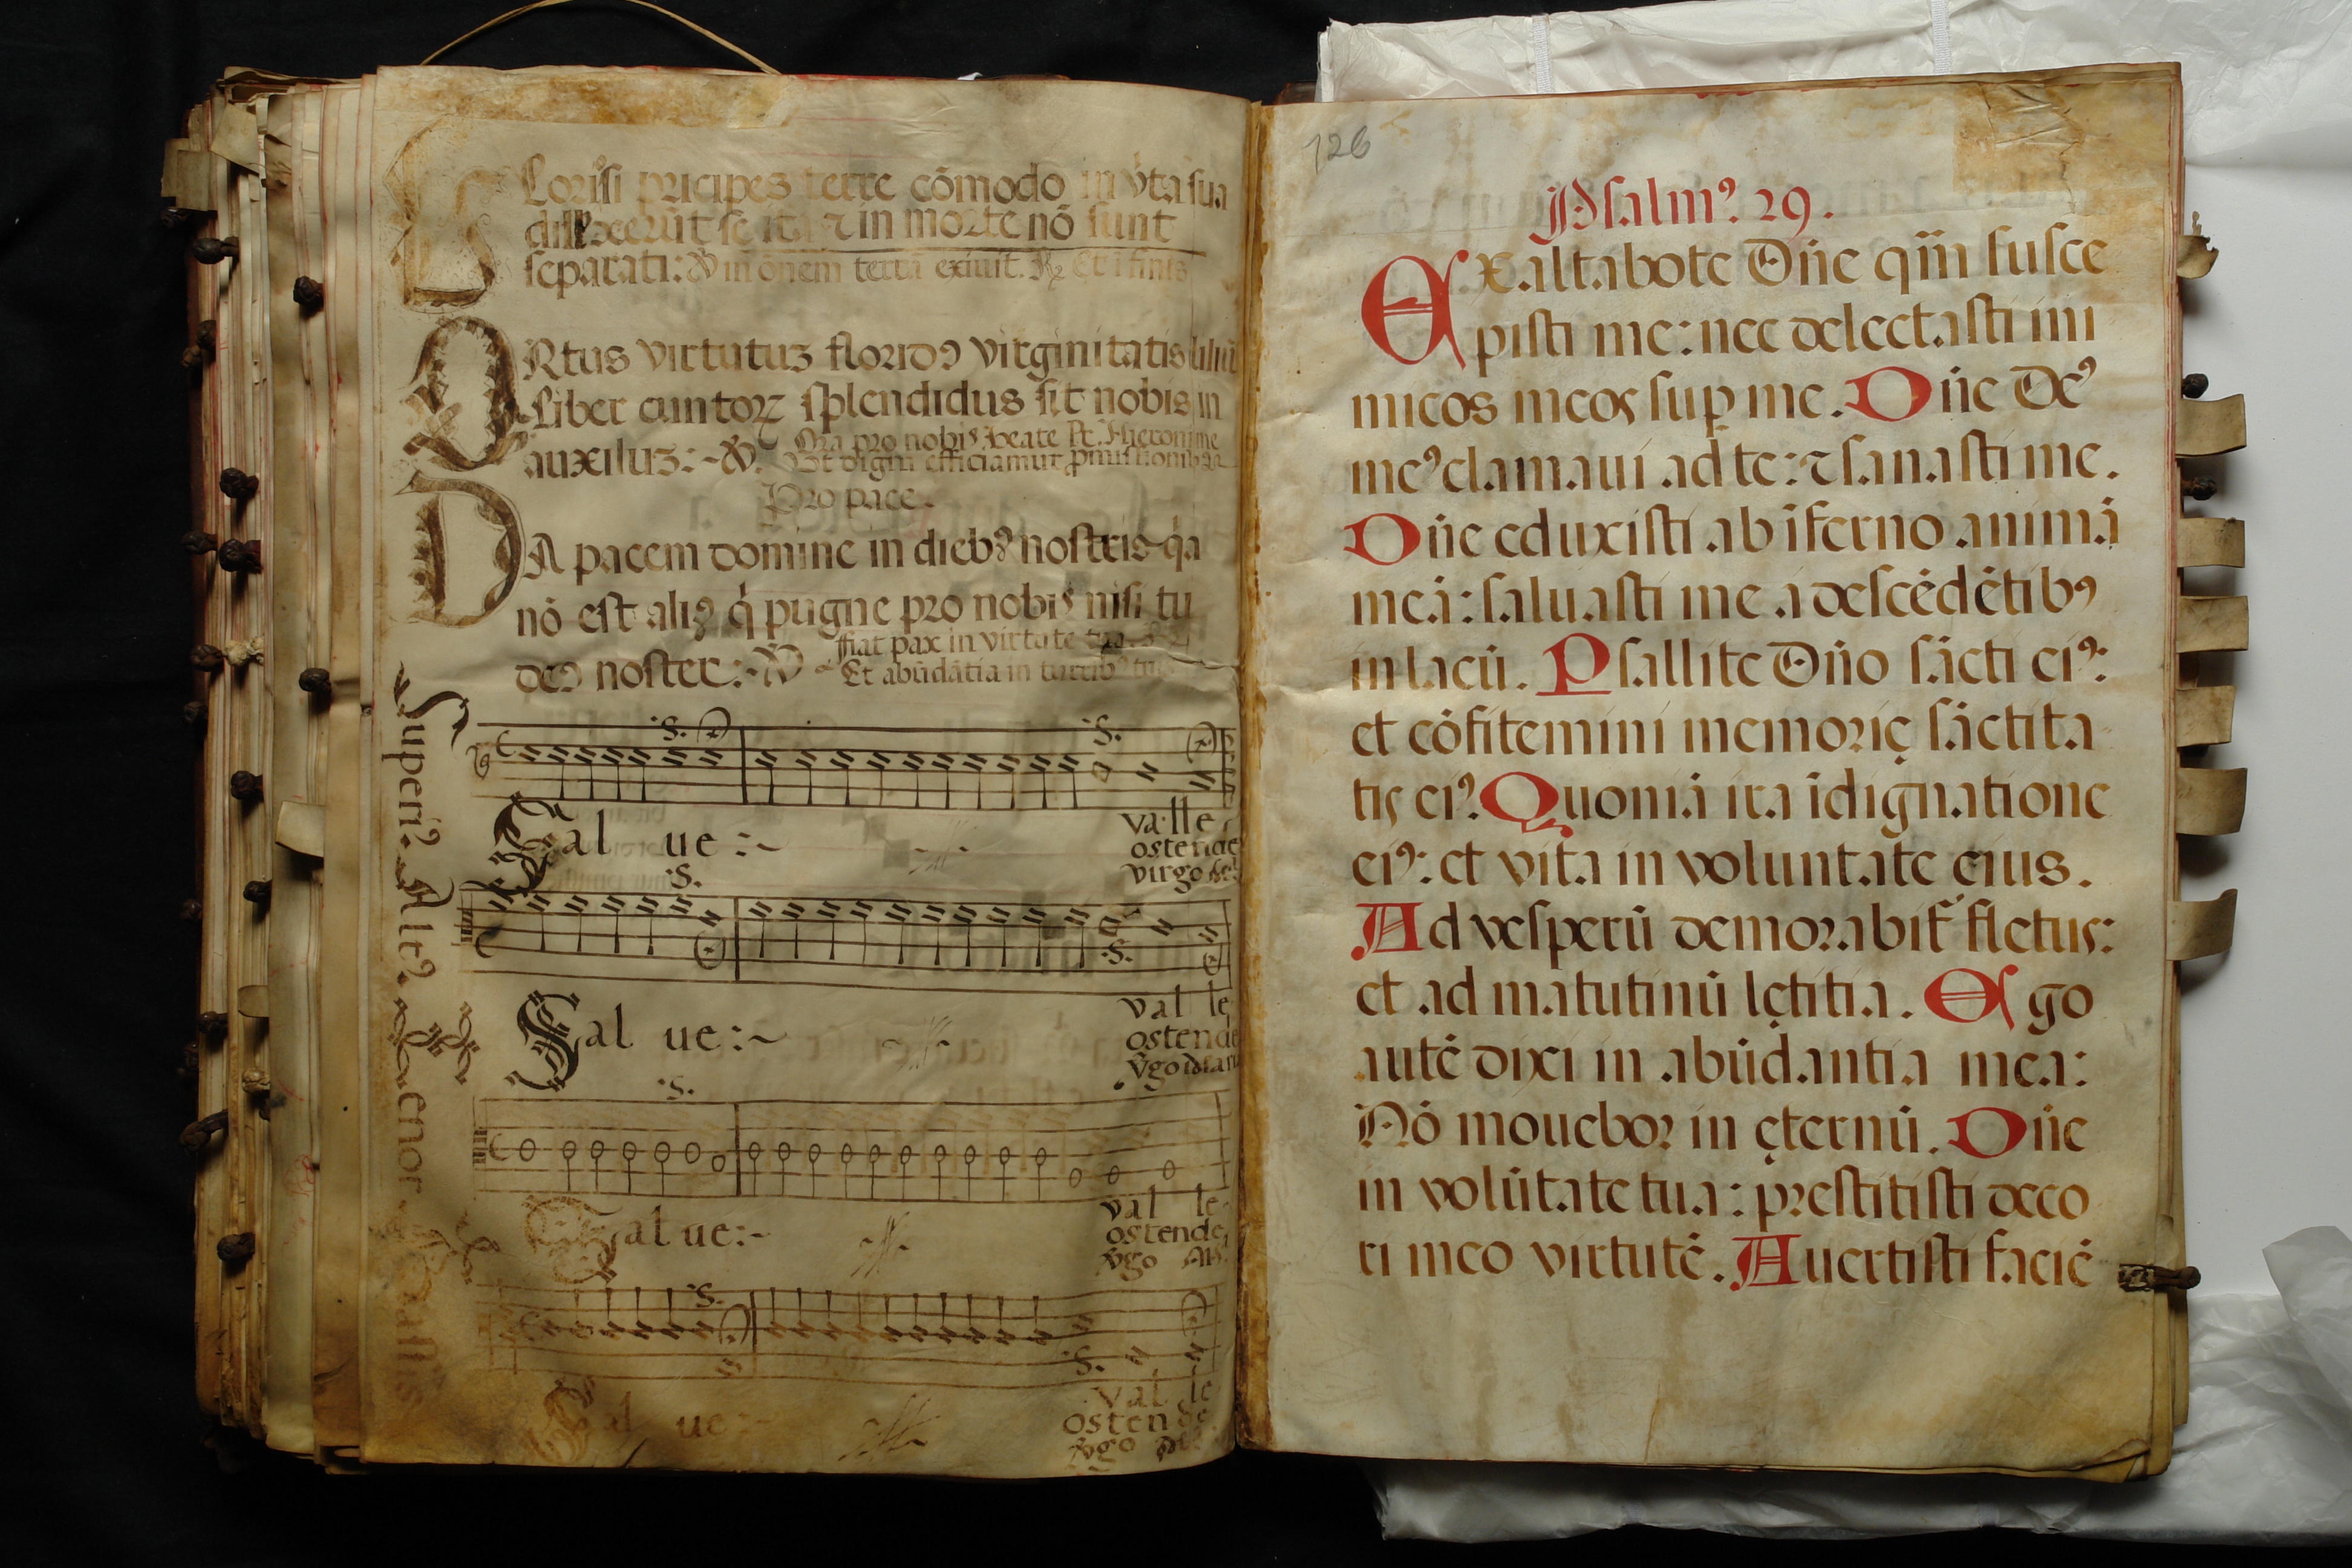 Gloriosi pricipes terre cōmodo in vita sua
dilexerūt se ita ⁊ in morte nō sunt
separati: ℣ in ōnem terrā exiuit. ℟ Et ī finis
ORtus virtutuʒ floridꝰ virginitatis liliū
Liber cuntoꝝ splendidus sit nobis in
auxiluʒ:~ ℣. Ora pro nobis beate Pr. Hieronime
Vt digni efficiamur ꝓmissionibꝰ
Pro pace.
DA pacem domine in diebꝰ nostris q̇a
nō est aliꝰ q̇ pugne pro nobis nisi tu
deꝰ noster:~ ℣ fiat pax in virtute tua
Et abūdātia in turribꝰ tuis
Superiꝰ. Altꝰ. Tenor. Bassus
.S. .S.
Sal ue:~ valle
ostende
virgo
.S.
.S.
Sal ue:~ val le
ostende
v̇go
.S.
Sal ue:~ val le
ostende
v̇go
.S.
.S.
Sal ue:~ val le
ostende
v̇go
126
Psalmꝰ. 29.
Exaltabote Dn̄e qm̄ susce
pisti me: nec delectasti ini
micos meos suꝑ me. Dn̄e Deꝰ
meꝰ clamaui ad te: ⁊ sanasti me.
Dn̄e eduxisti ab īferno animā
meā: saluasti me a descēdētibꝰ
in lacū. Psallite Dn̄o sācti eiꝰ:
et cōfitemini memorię sāctita
tis eiꝰ. Quoniā ira īdignatione
eiꝰ: et vita in voluntate eius.
Ad vesperū demorabit᷑ fletus:
et ad matutinū lętitia. Ego
autē dixi in abūdantia mea:
Nō mouebor in ęternū. Dn̄e
in volūtate tua: prestitisti deco
ri meo virtutē. Auertisti faciē